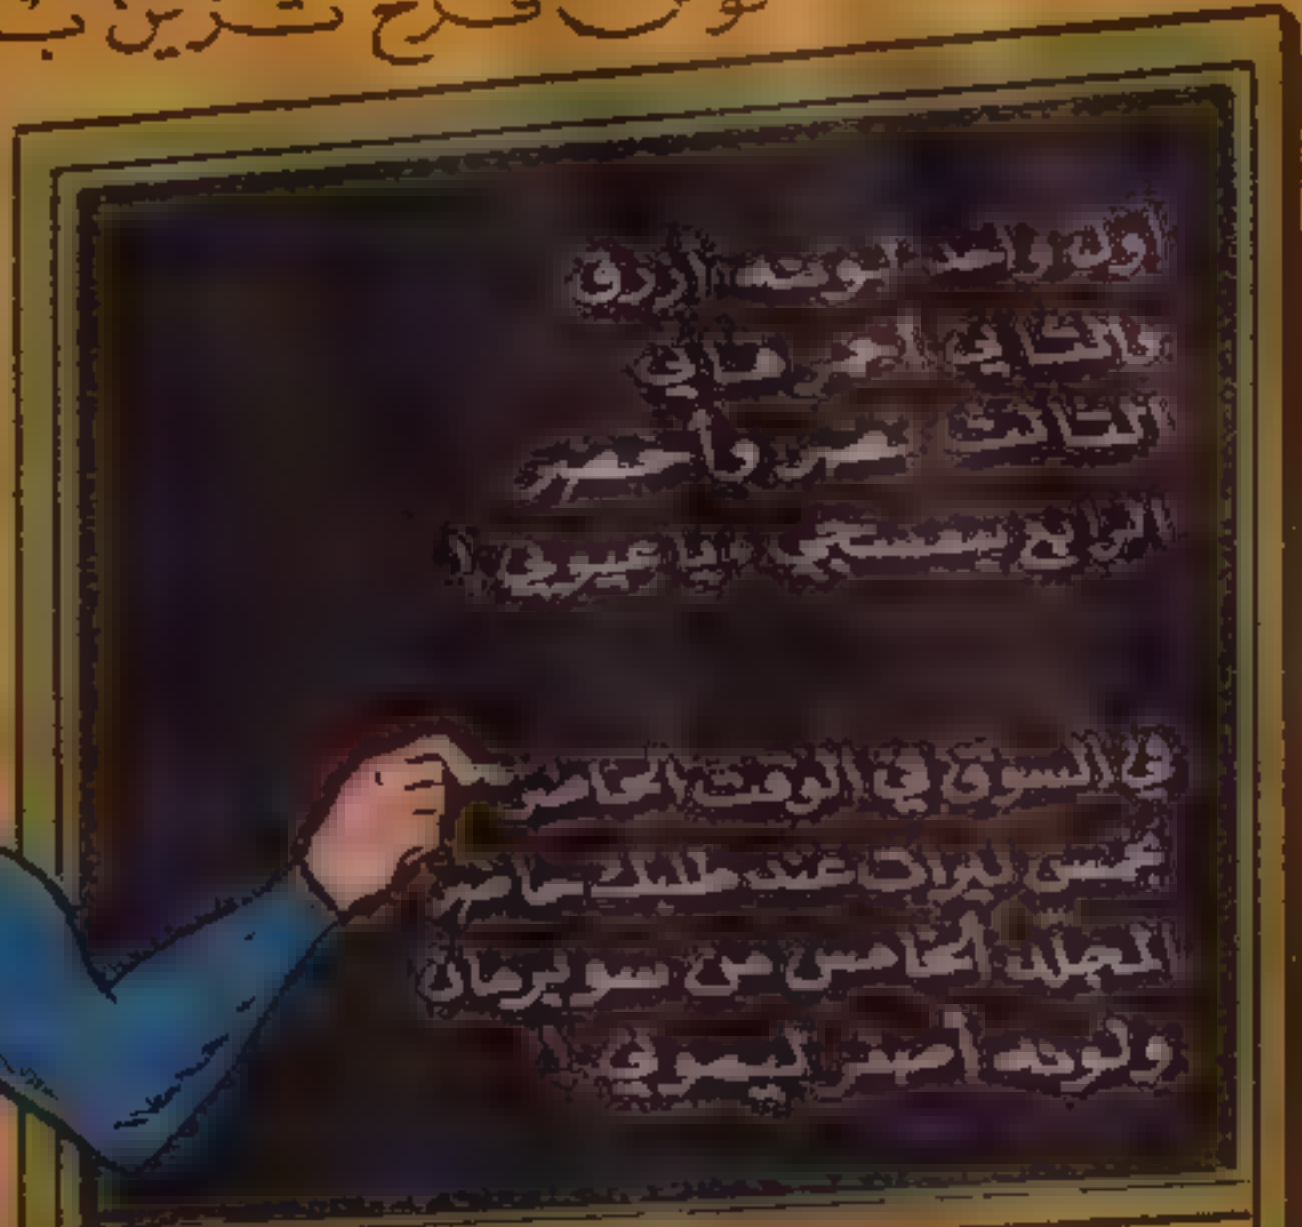 فرح تشرين
أول واحد لونه أزرق
والثاني أحمر قاني
الثالث نصر وأخضر
الرابع بنفسجي يا عيوني !
في السوق في الوقت الحاضر
بخمس ليرات عند طلبك حاضر
المجلد الخامس من سوبرمان
ولونه أصفر ليموني !